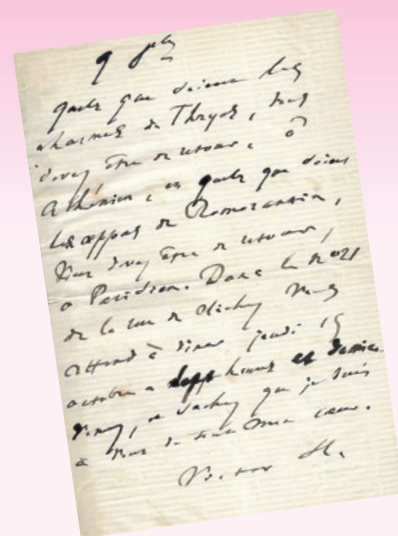 9 8bre
quels que soient les
charmes de Thryes, vous
devez être de retour, ô
Athénien, et quels que soient
les appas de Romorantin,
vous devez être de retour,
ô Parisien. Donc le n° 21
de la rue de Clichy vous
attend à dîner jeudi 15
octobre à sept heures et demie.
Venez, et sachez que je suis
à vous de tout mon cœur.
Victor H.